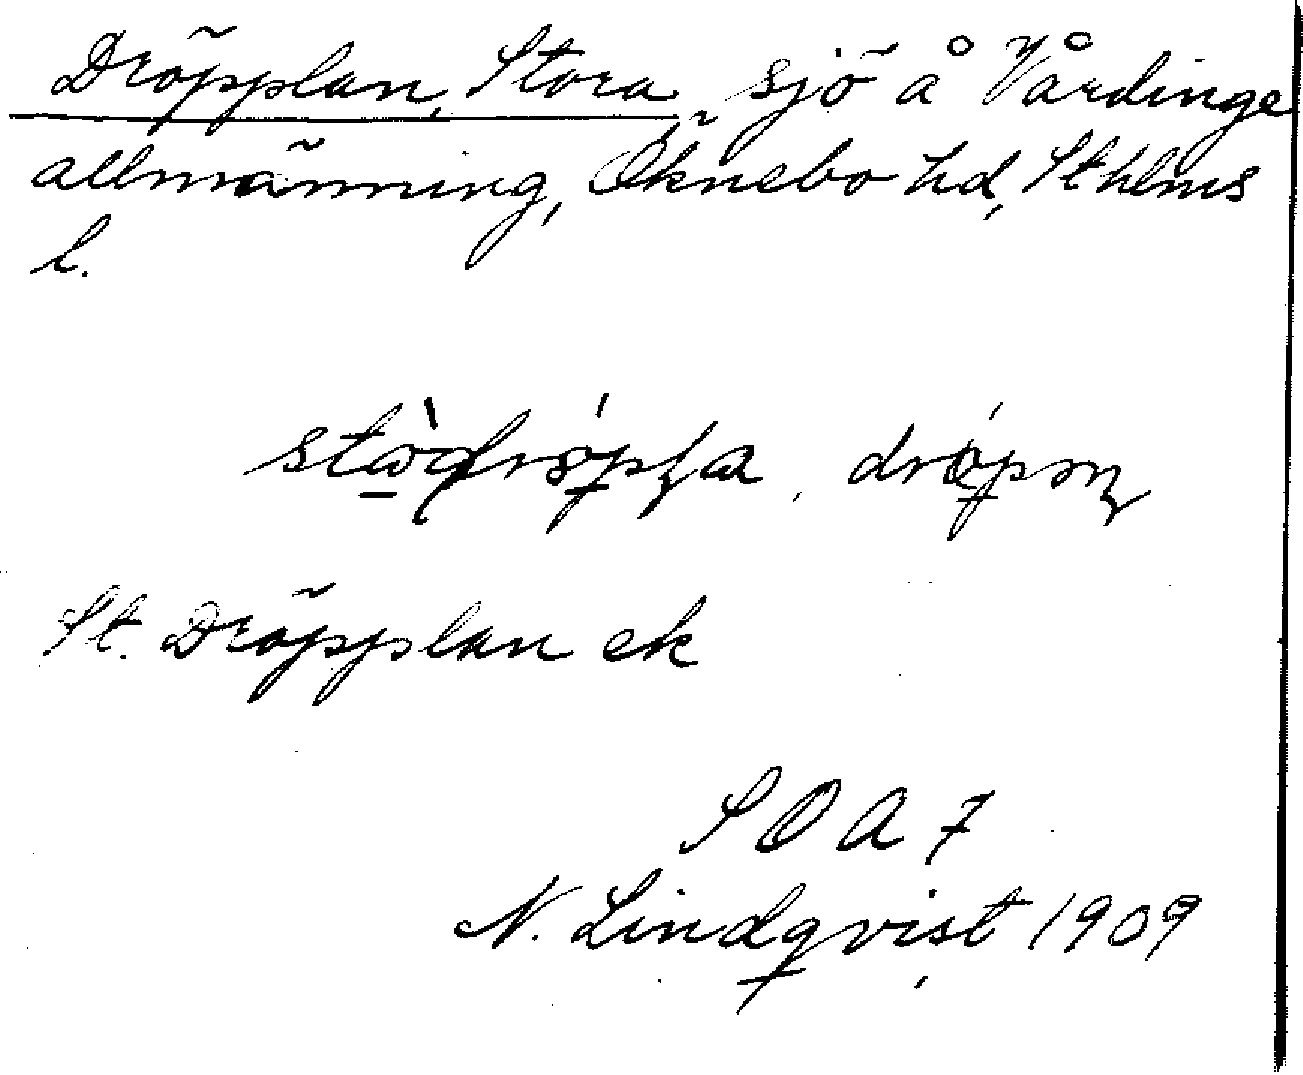 Dröpplan, Stora, sjö å Vårdinge
allmänning, Öknebo hd, Sthlms
l.
St. Dröpplan ek
SOA 7
N. Lindqvist 1909